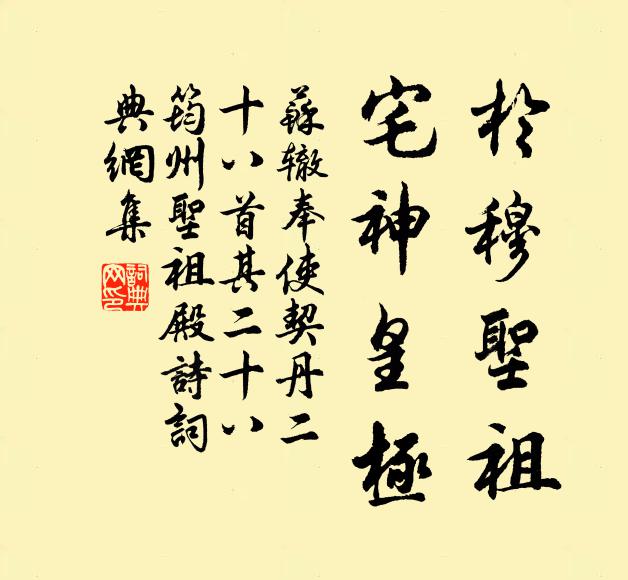 於穆聖祖
宅神皇極
蘇辙奉使契丹二
十八首其二十八
筠州聖祖殿詩詞
典網集
詞典网印